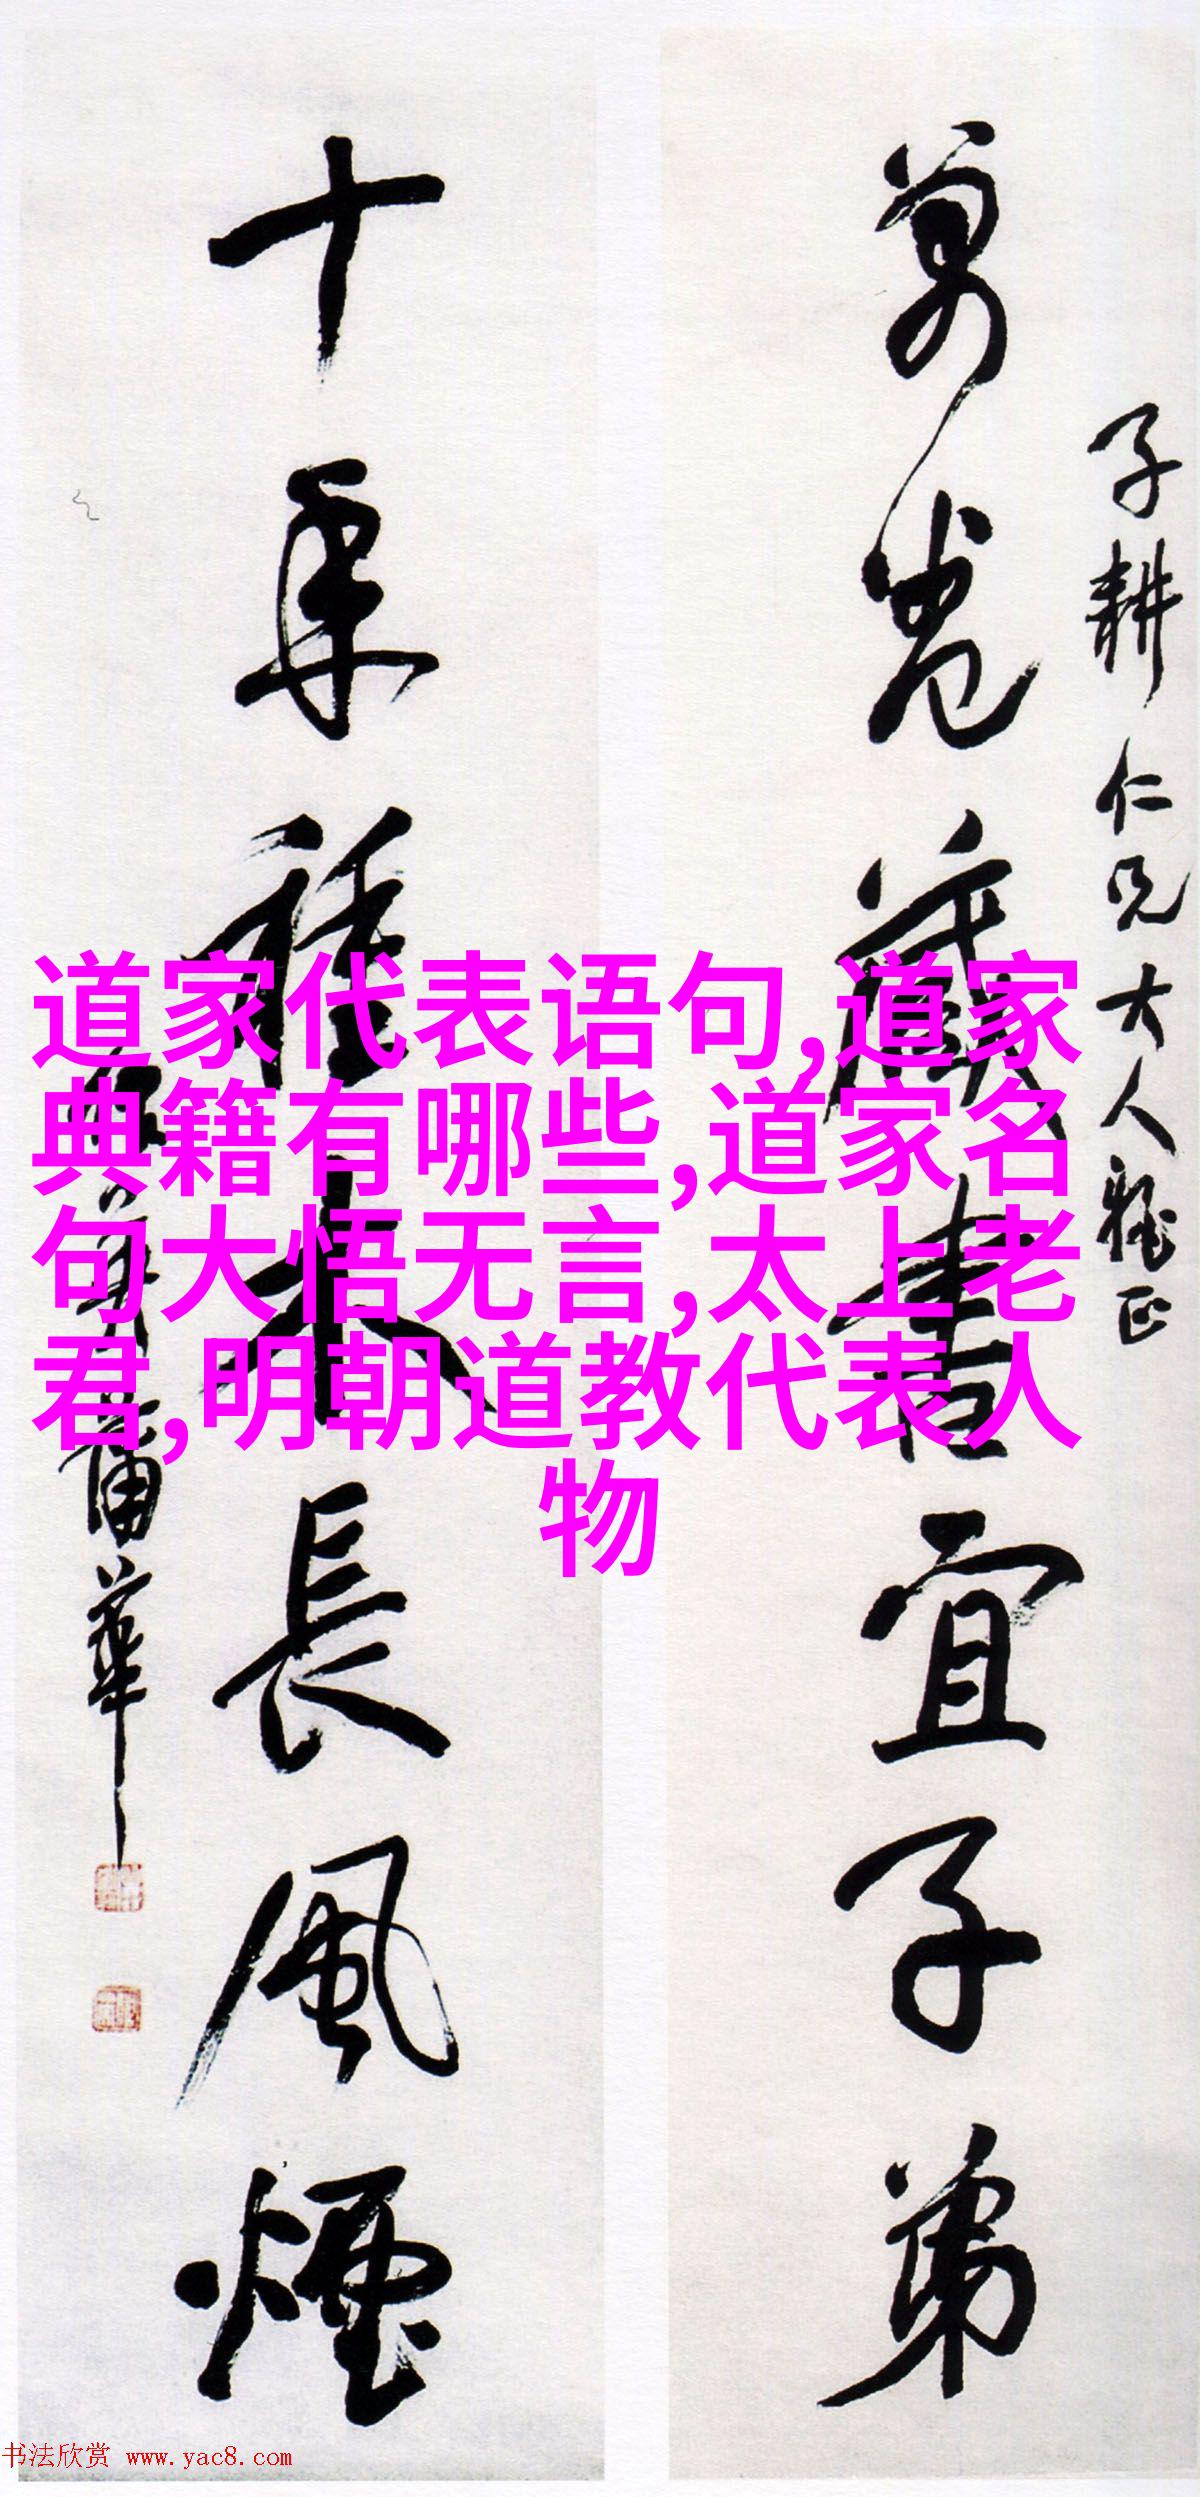 子耕仁兄大人雅正
萬卷藏書宜子弟
十年種木長風煙
蒲華
道家代表语句,道家
典籍有哪些,道家名
句大悟无言,太上老
君,明朝道教代表人
物
书法欣赏 www.yac8.com